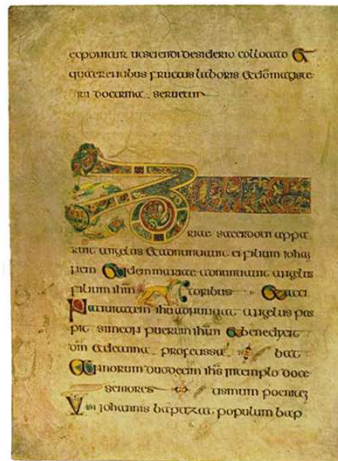 exponitur ut sciendi desiderio collocato &
quaerentibus fructus laboris & do magiste
rii doctrina seruetur
riae sacerdoti appa
ruit angelus & adnuntiauit ei filium iohan
nem Eidem mariae adnuntiauit angelus
filium ihm toribus Et acci
ihm adnuntiat angelus pas
pit simeon puerum ihm & benedixit
dm & de anna bat
Annorum duodecim ihs in templo doce
seniores tismum
iohannis baptizat populum bap